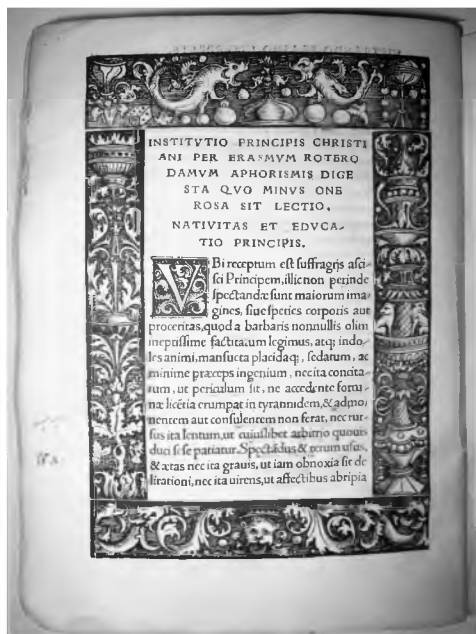 INSTITVTIO PRINCIPIS CHRISTI
ANI PER ERASMVM ROTERO
DAMVM APHORISMIS DIGE
STA QVO MINVS ONE
ROSA SIT LECTIO.
NATIVITAS ET EDVCA-
TIO PRINCIPIS.
VBi receptum est suffragijs asci-
sci Principem, illic non perinde
spectandæ sunt maiorum ima-
gines, siue species corporis aut
proceritas, quod a barbaris nonnullis olim
ineptissime factitatum legimus, atq; indo-
les animi, mansueta placidaq;, sedatum, ac
minime præceps ingenium, nec ita concita-
tum, ut periculum sit, ne accedente fortu-
næ licētia erumpat in tyrannidem, & admo-
nentem aut consulentem non ferat, nec rur-
sus ita lentum, ut cuiuslibet arbitrio quouis
duci sese patiatur. Spectādus & rerum usus,
& ætas nec ita grauis, ut iam obnoxia sit de
lirationi, nec ita uirens, ut affectibus abripia